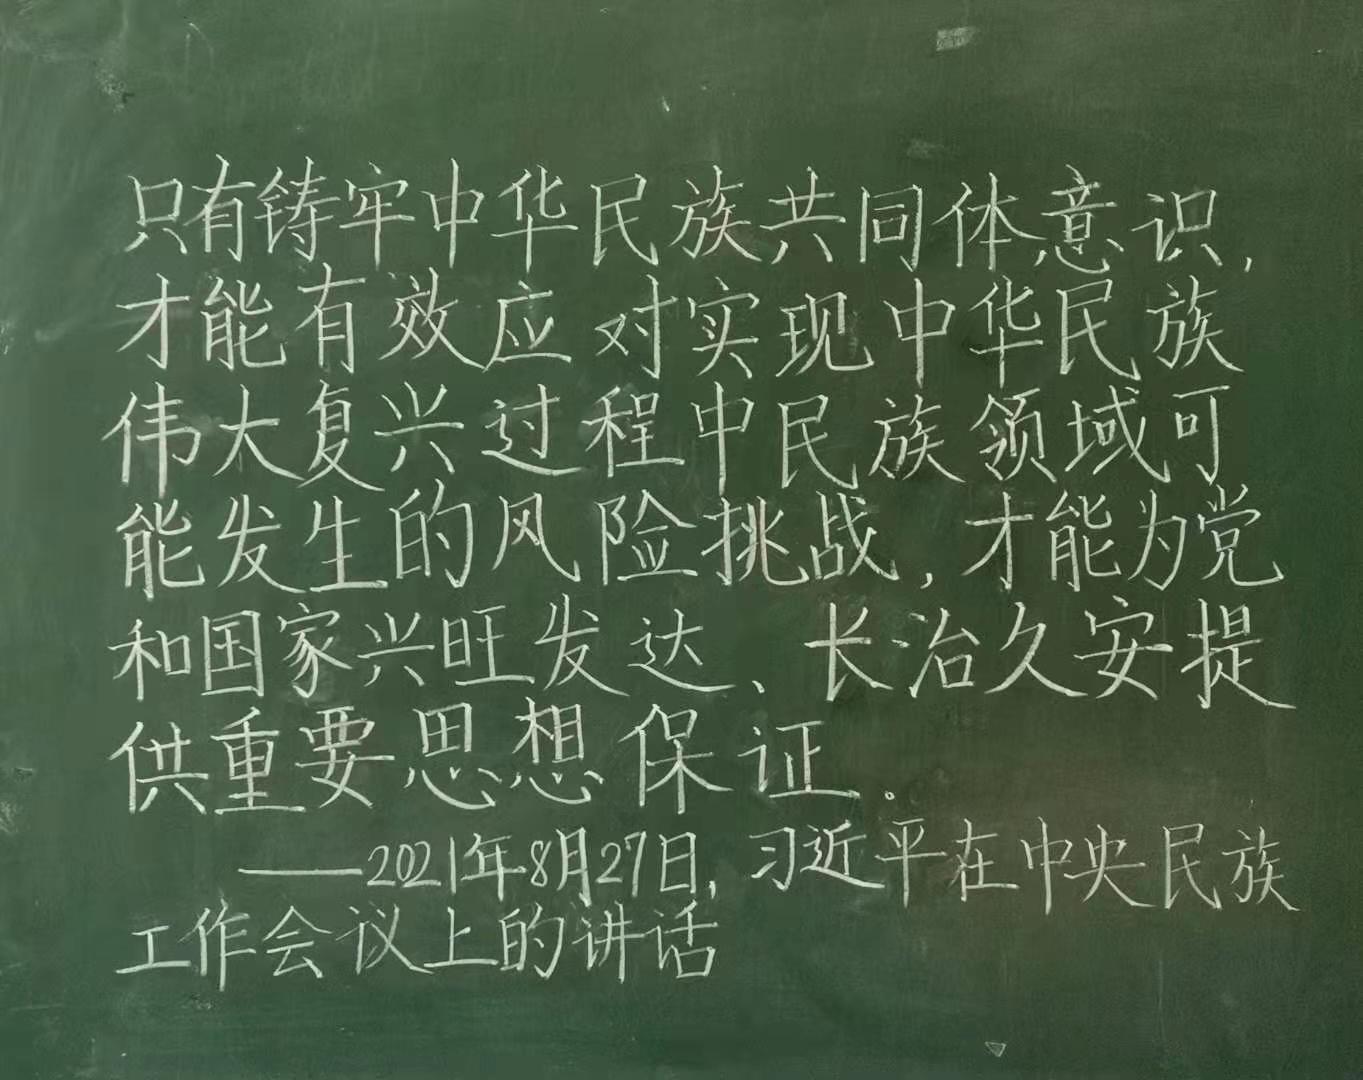 只有铸牢中华民族共同体意识,
才能有效应对实现中华民族
伟大复兴过程中民族领域可
能发生的风险挑战,才能为党
和国家兴旺发达、长治久安提
供重要思想保证。
——2021年8月27日,习近平在中央民族
工作会议上的讲话